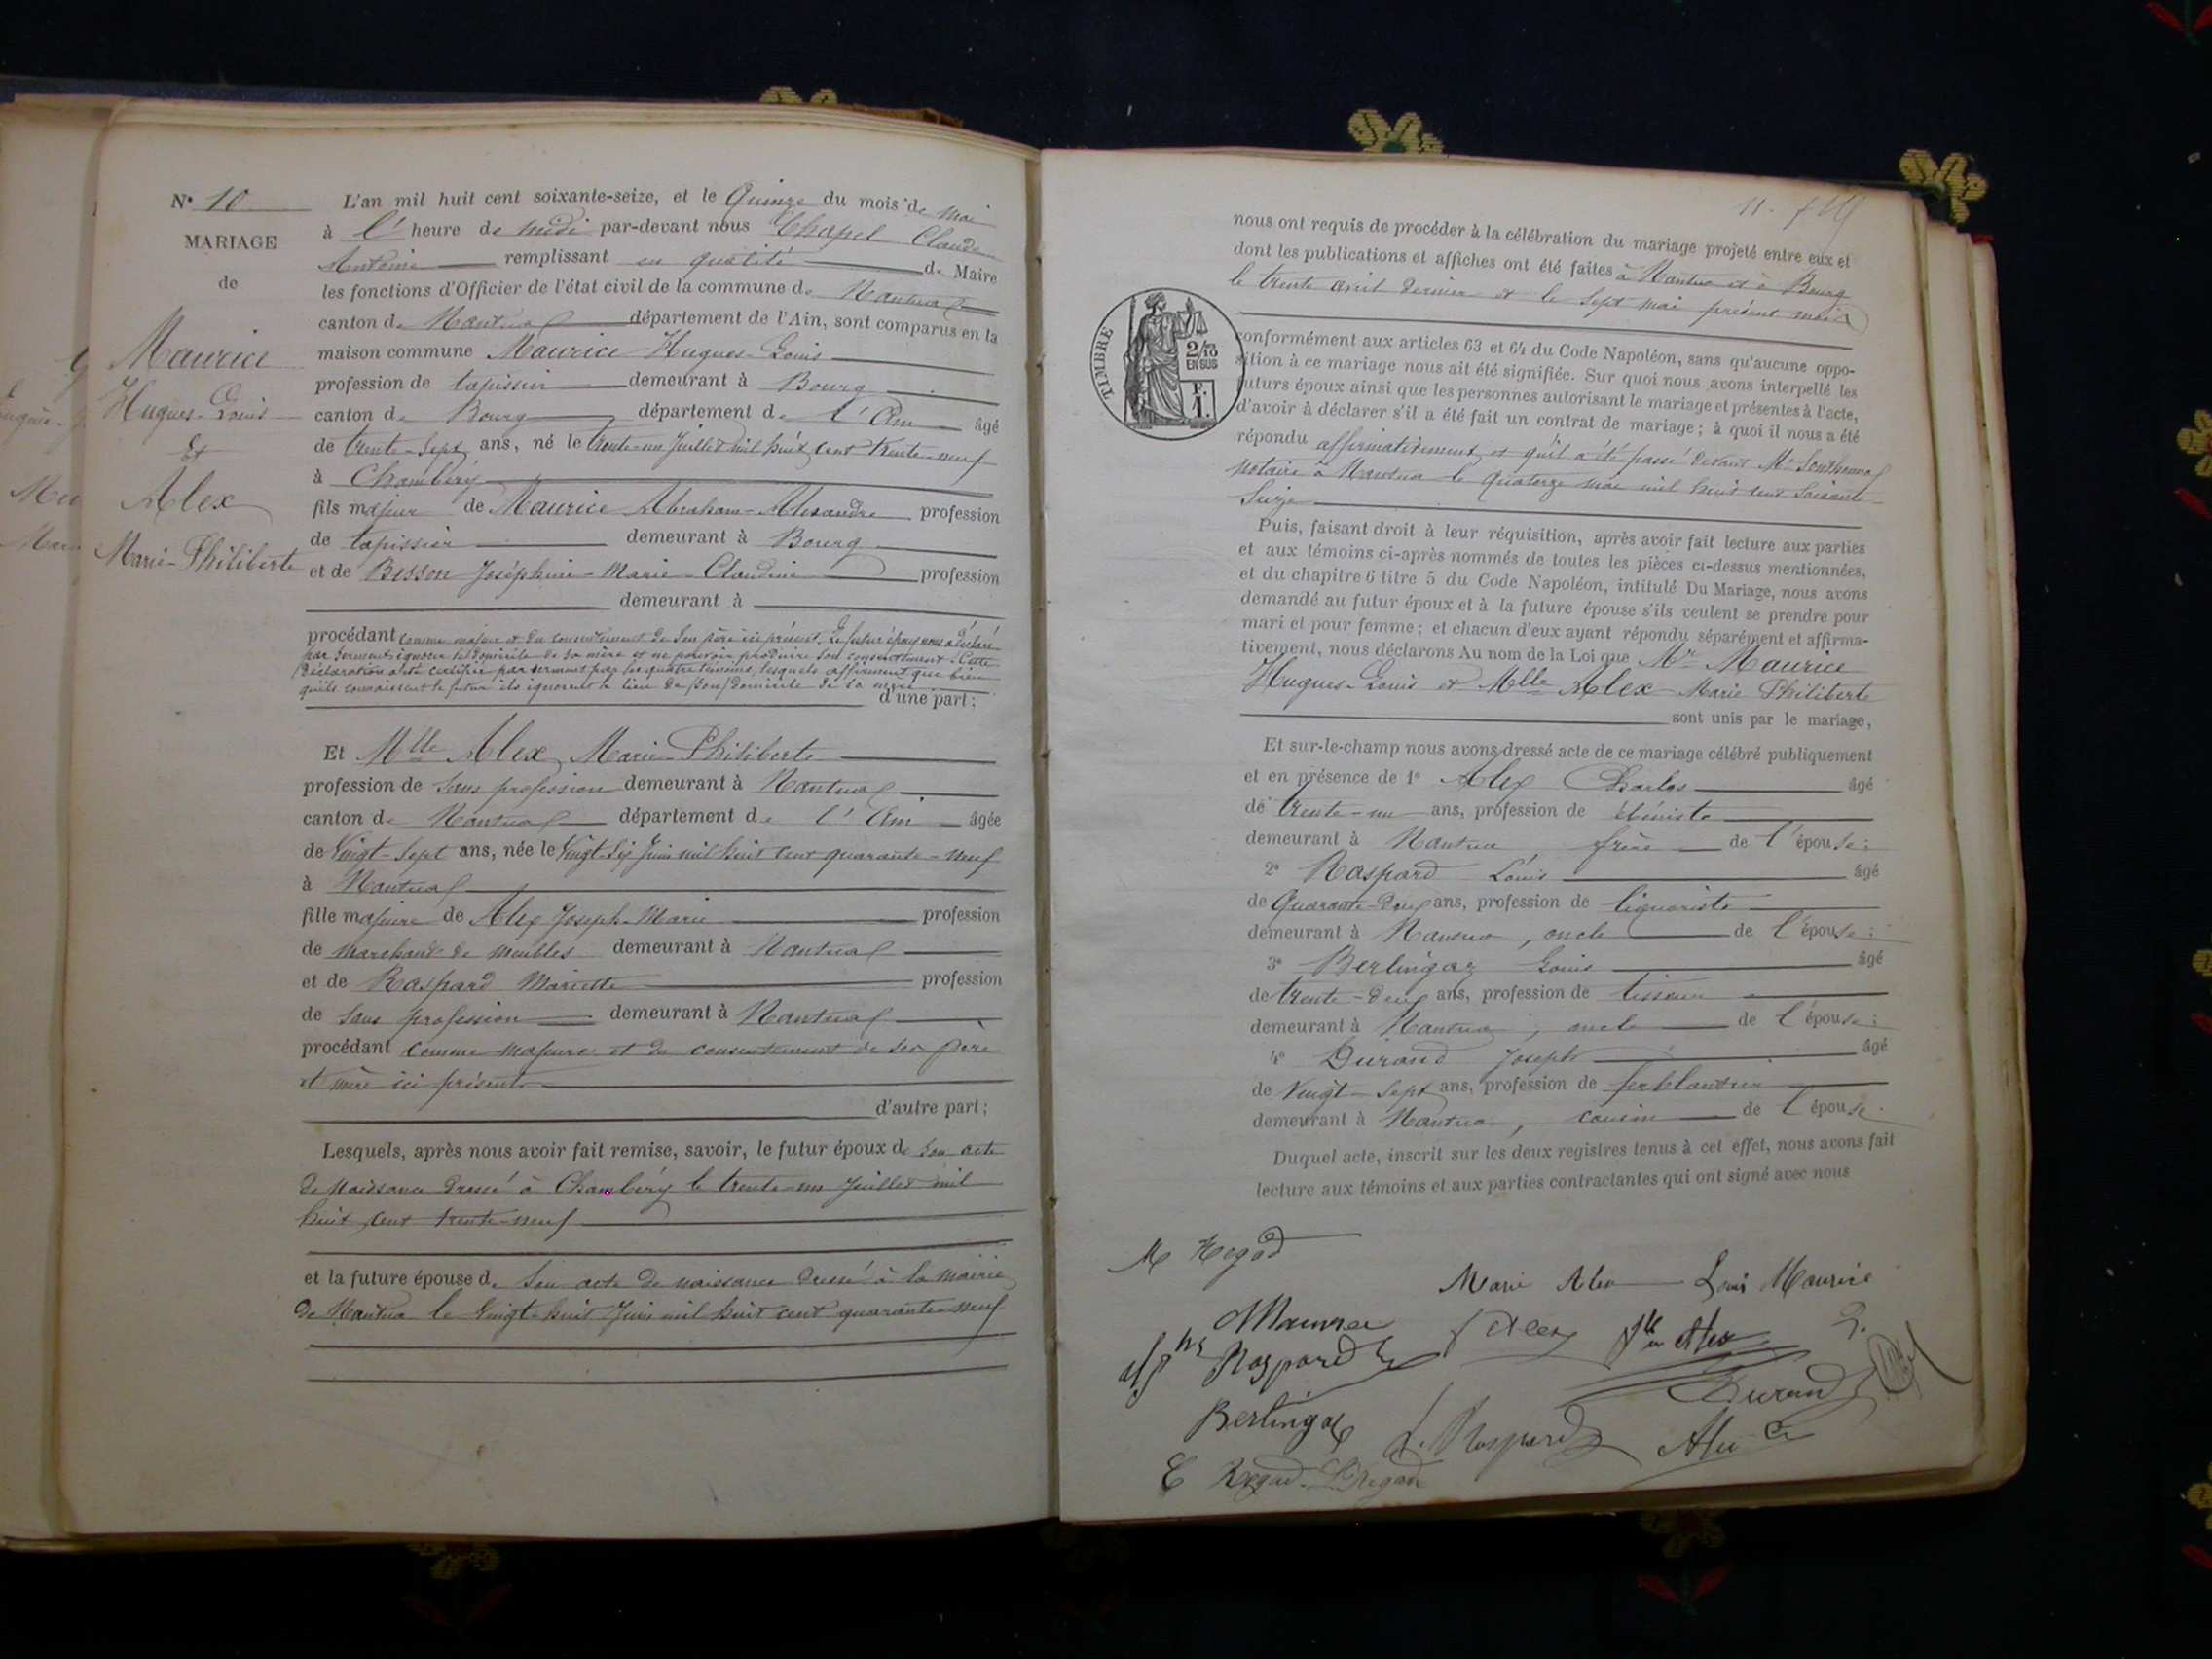 N° 10
MARIAGE
de
Maurice
Hugues-Louis
Et
Alex
Marie-Philiberte
L'an mil huit cent soixante-seize, et le Quinze du mois de Mai
à l' heure de midi par-devant nous Chapel Claude
Antoine remplissant en qualité de Maire
les fonctions d'Officier de l'état civil de la commune de Nantua
canton de Nantua département de l'Ain, sont comparus en la
maison commune Maurice Hugues-Louis
profession de tapissier demeurant à Bourg
canton de Bourg département de l'Ain âgé
de trente-sept ans, né le trente-un Juillet mil huit cent trente-neuf
à Chambéry
fils majeur de Maurice Abraham-Alexandre profession
de tapissier demeurant à Bourg
et de Besson Joséphine-Marie-Claudine profession
demeurant à
procédant comme majeur et du consentement de son père ici présent. Le futur époux nous a déclaré
par serment ignorer le domicile de sa mère et ne pouvoir produire son consentement. Cette
déclaration a été certifiée par serment par les quatre témoins, lesquels affirment que bien
qu'ils connaissent le futur ils ignorent le lieu de (son) domicile de sa mère
d'une part;
Et Mlle Alex Marie-Philiberte
profession de sans profession demeurant à Nantua
canton de Nantua département de l'Ain âgée
de Vingt-sept ans, née le Vingt-six Juin mil huit cent quarante-neuf
à Nantua
fille majeure de Alex Joseph-Marie profession
de marchand de meubles demeurant à Nantua
et de Raspard Mariette profession
de sans profession demeurant à Nantua
procédant comme majeure et du consentement de ses père
et mère ici présents
d'autre part;
Lesquels, après nous avoir fait remise, savoir, le futur époux de son acte
de Naissance dressé à Chambéry le trente-un Juillet mil
huit cent trente-neuf
et la future épouse de son acte de naissance dressé à la mairie
de Nantua le Vingt-huit Juin mil huit cent quarante-neuf
11.
nous ont requis de procéder à la célébration du mariage projeté entre eux et
dont les publications et affiches ont été faites à Nantua et à Bourg
le trente avril dernier et le sept mai présent mois
TIMBRE
2/10
EN SUS
F.
1.
conformément aux articles 63 et 64 du Code Napoléon, sans qu'aucune oppo-
sition à ce mariage nous ait été signifiée. Sur quoi nous avons interpellé les
futurs époux ainsi que les personnes autorisant le mariage et présentes à l'acte,
d'avoir à déclarer s'il a été fait un contrat de mariage; à quoi il nous a été
répondu affirmativement, et qu'il a été passé devant Me
notaire à Nantua le quatorze mai mil huit cent soixante-
Seize
Puis, faisant droit à leur réquisition, après avoir fait lecture aux parties
et aux témoins ci-après nommés de toutes les pièces ci-dessus mentionnées,
et du chapitre 6 titre 5 du Code Napoléon, intitulé Du Mariage, nous avons
demandé au futur époux et à la future épouse s'ils veulent se prendre pour
mari et pour femme; et chacun d'eux ayant répondu séparément et affirma-
tivement, nous déclarons Au nom de la Loi que Mr Maurice
Hugues-Louis et Melle Alex Marie Philiberte
sont unis par le mariage,
Et sur-le-champ nous avons dressé acte de ce mariage célébré publiquement
et en présence de 1° Alex Charles âgé
de trente-un ans, profession de ébéniste
demeurant à Nantua frère de l'épouse;
2° Raspard Louis âgé
de Quarante-deux ans, profession de liquoriste
demeurant à Nantua, oncle de l'épouse;
3° Berlingaz Louis âgé
de trente-deux ans, profession de tisseur
demeurant à Nantua, oncle de l'épouse;
4° Durand Joseph âgé
de Vingt-sept ans, profession de ferblantier
demeurant à Nantua, cousin de l'épouse.
Duquel acte, inscrit sur les deux registres tenus à cet effet, nous avons fait
lecture aux témoins et aux parties contractantes qui ont signé avec nous
M Regad
Marie Alex Louis Maurice
AMaurice J Alex Alex
Raspard
Durand
Berlingaz L. Raspard Alex Ch
E Regad. Regad